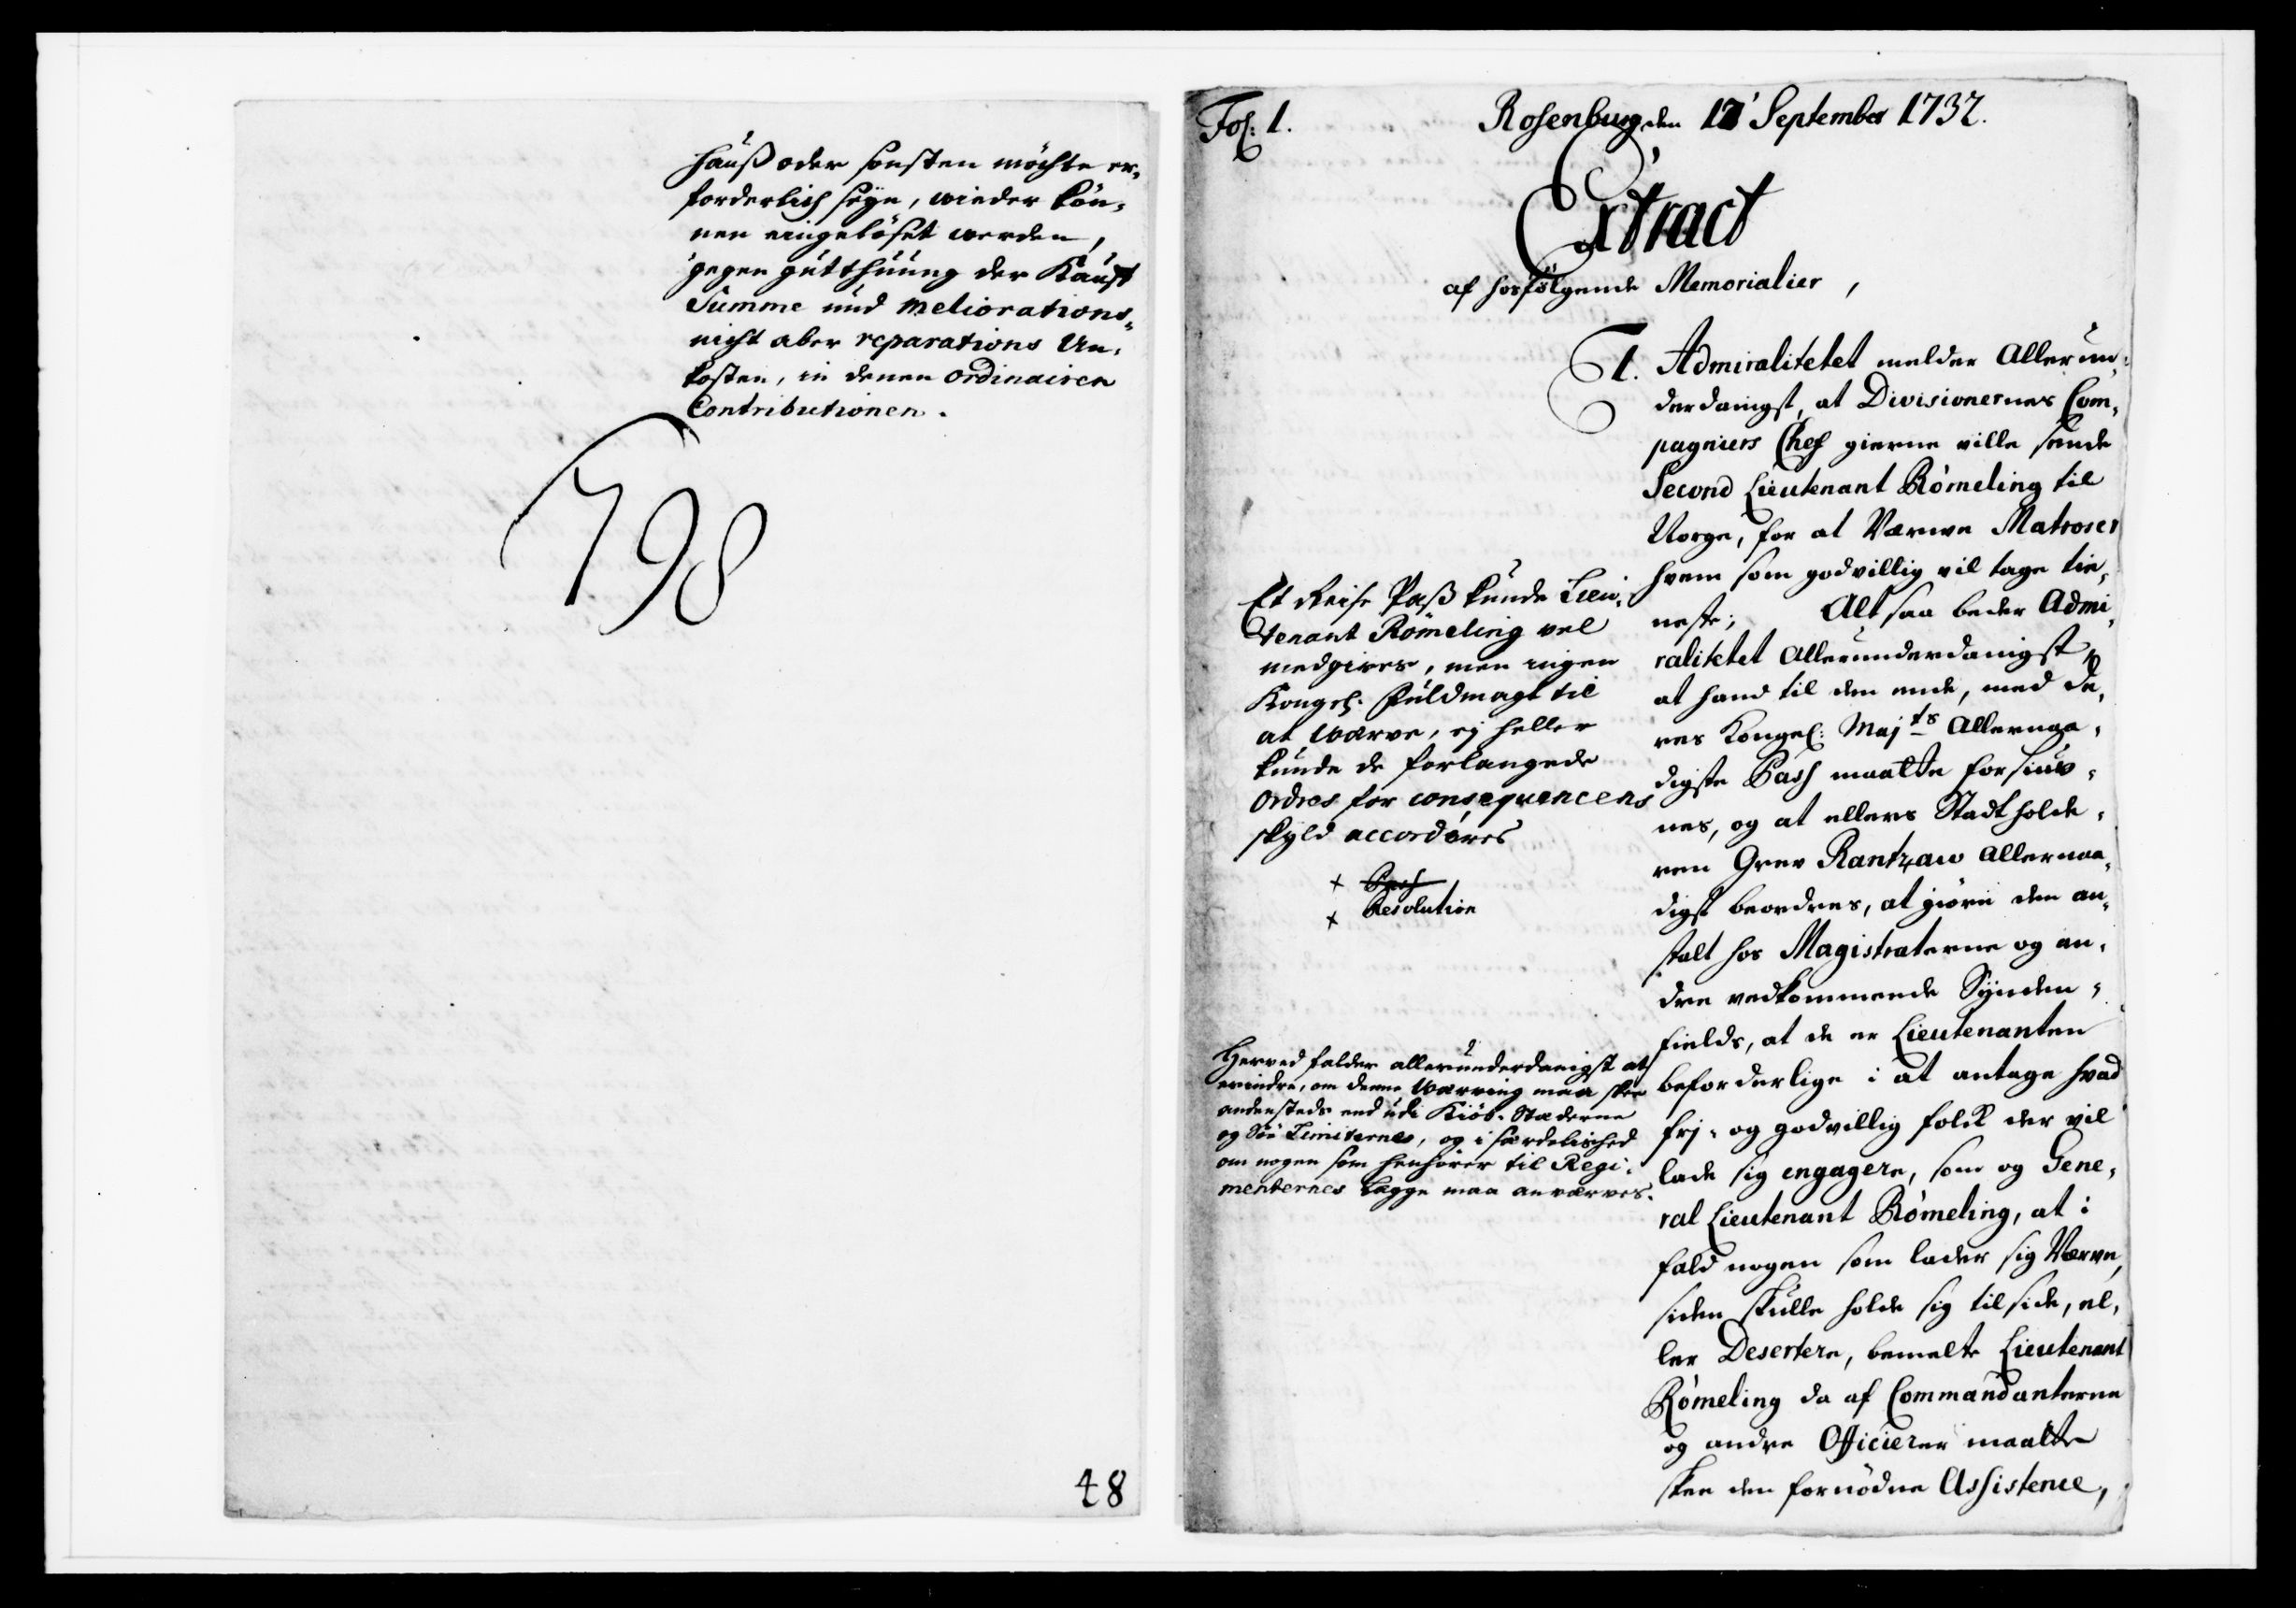 Hauß oder sonsten möchte er-
forderlich seyn, wieder kön-
nen eingelöset werden,
gegen gutthuung der Kauff
Summe und Meliorations-
nicht aber reparations Un-
kosten, in denen ordinairen
Contributionen.
798
48
Fol: 1.
Rosenburg den September 1732.
Extract
af hosfølgende Memorialier,
1. Admiralitetet melder Allerun-
derdanigst, at Divisionernes Com-
pagniers Chef gierne ville sende
Second Lieutenant Römeling til
Norge, for at Værve Matroser
hvem som godvillig vil tage tie-
neste; Alt saa beder Admi-
ralitetet Allerunderdanigst,
at hand til den ende, med De-
res Kongel: Maj:ts Allernaa-
digste Pass maatte forsiuv-
nes, og at ellers Stadtholde-
ren Grev Rantzaw Allernaa-
digst beordres, at giøre den an-
stalt hos Magistraterne og an-
dre vedkommende Synden-
fields, at de er Lieutenanten
beforderlige i at antage hvad
frj- og godvillig folck der vil
lade sig engagere, som og Gene-
ral Lieutenant Römeling, at i
fald nogen som lader sig Værve,
siden skulle holde sig til side, el-
ler Desertere, bemelte Lieutenant
Römeling da af Commandanterne
og andre Officierer maatte
skee den fornødne Assistence,
Et Reise Paß kunde Lieu-
tenant Römeling vel
medgives, men ingen
Kongel: Fuldmagt til
at Værve, ej heller
kunde de forlangede
Ordres for consequencens
skyld accorderes
+ Pass
+ Resolution
Herved falder allerunderdanigst at
erindre, om denne Værving maa skee
andensteds end udi Kiøb-Stæderne
og Søe Limiterne, og i særdelished
om nogen som henhører til Regi-
menternes Lægge maa anværves.